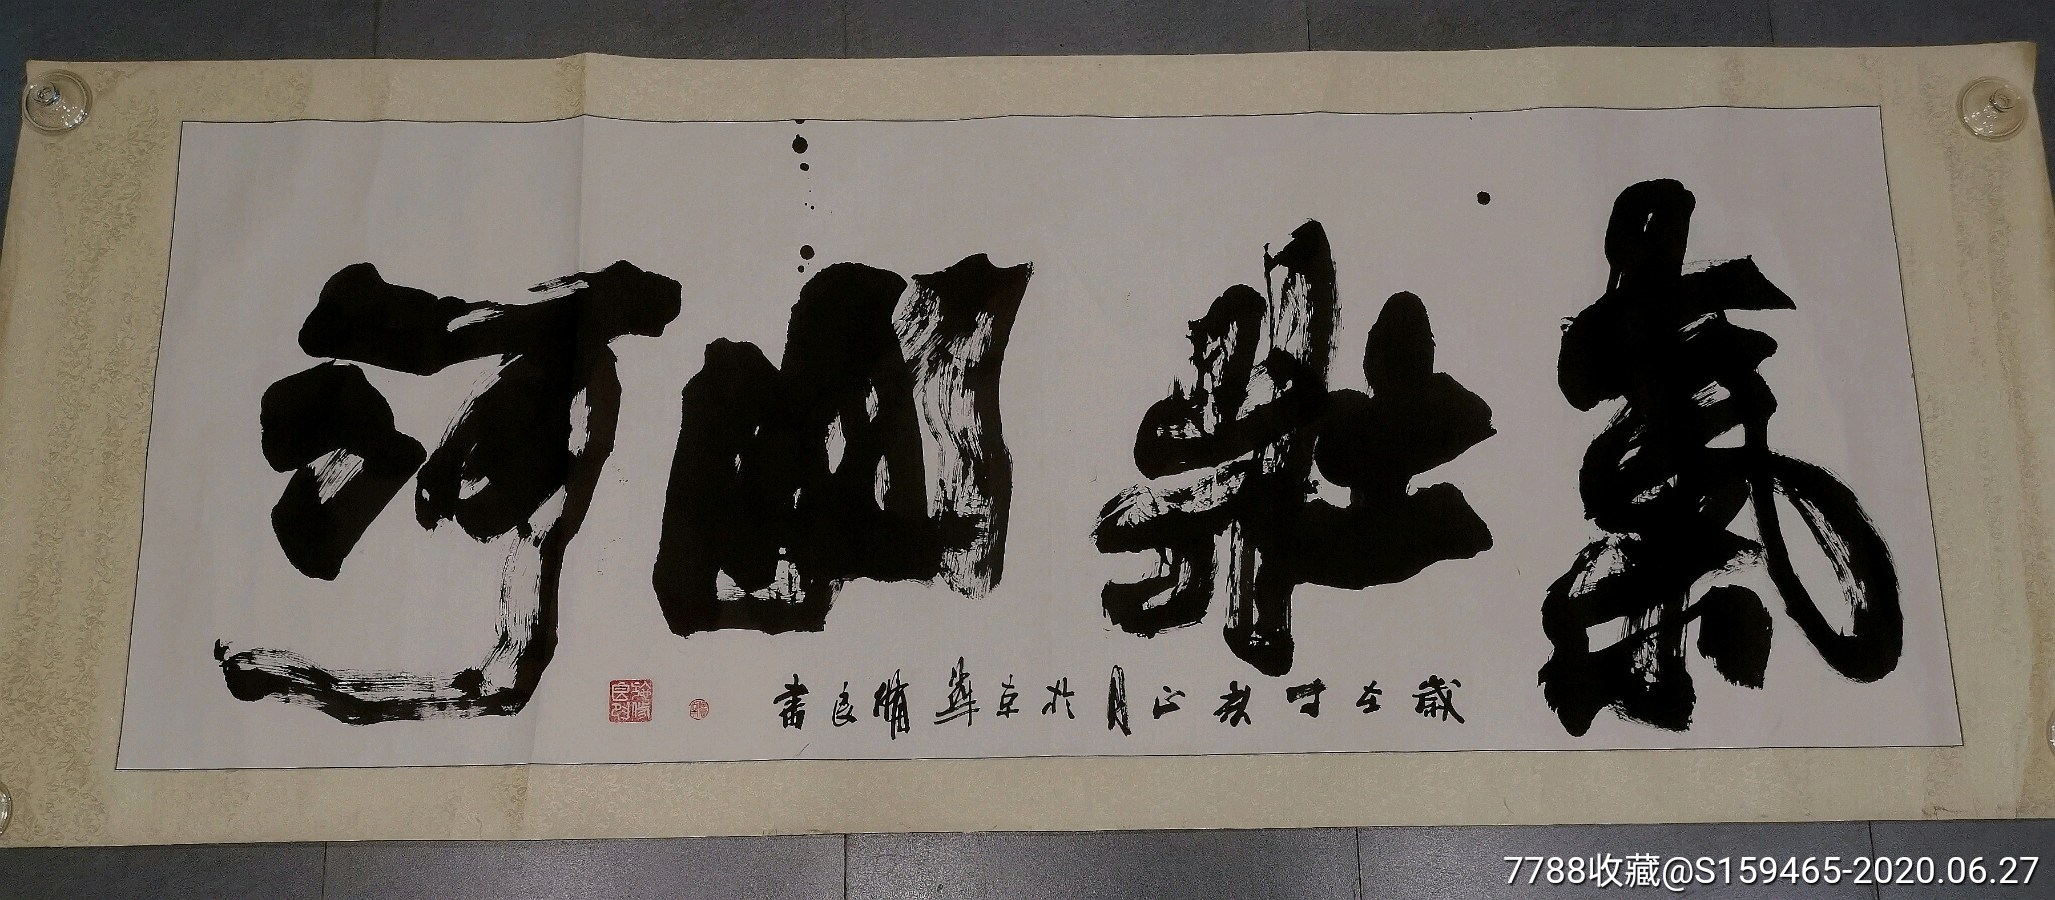 氣壯山河
歲在時秋正月於京華脩良書
7788收藏@S159465-2020.06.27